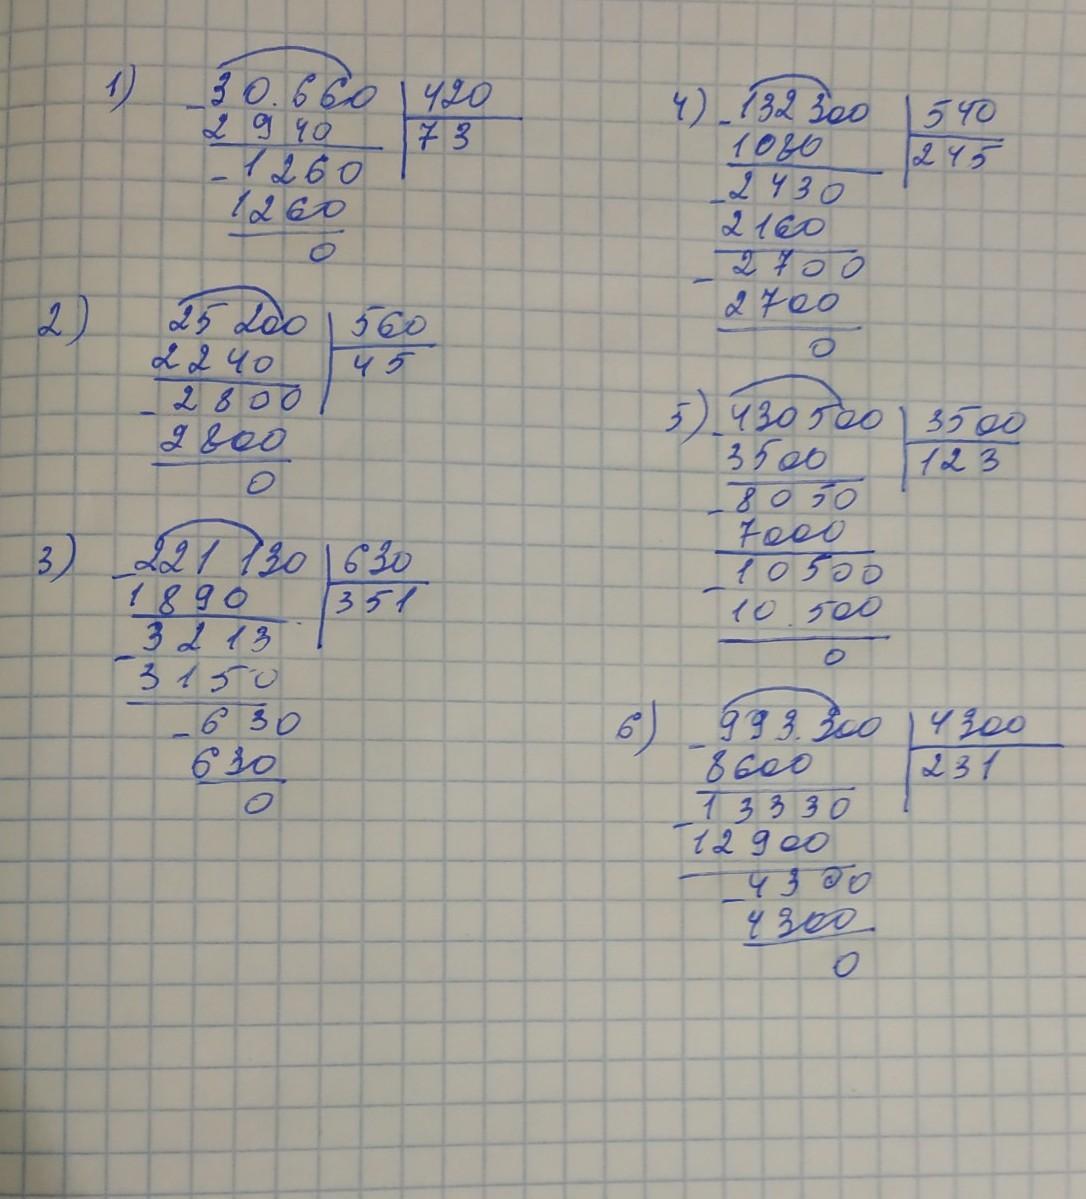 1) -30.660 | 420
2940 | 73
-1260
1260
0
2) 25 200 | 560
2240 | 45
-2800
2800
0
3) -221 130 | 630
1890 | 351
-3213
3150
-630
630
0
4) -132 300 | 540
1080 | 245
-2430
2160
-2700
2700
0
5) -430 500 | 3500
3500 | 123
-8050
7000
-10500
10.500
0
6) -993.300 | 4300
8600 | 231
-13330
12900
-4300
4300
0